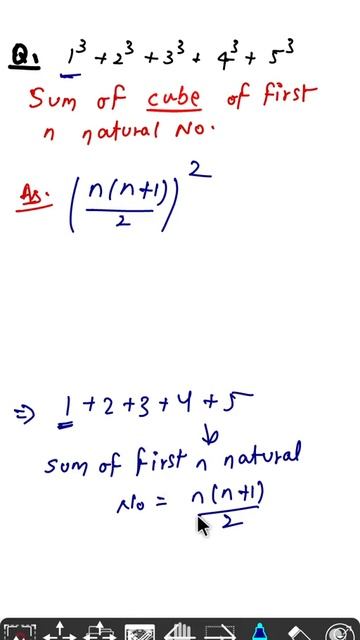 Q. 1³ + 2³ + 3³ + 4³ + 5³
Sum of cube of first
n natural No.
As. (n(n+1)/2)²
⇒ 1 + 2 + 3 + 4 + 5
↓
sum of first n natural
No = n(n+1)/2